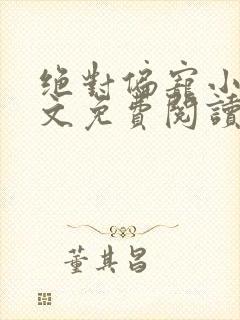 絕對偏寵小
文免費閱讀
董其昌